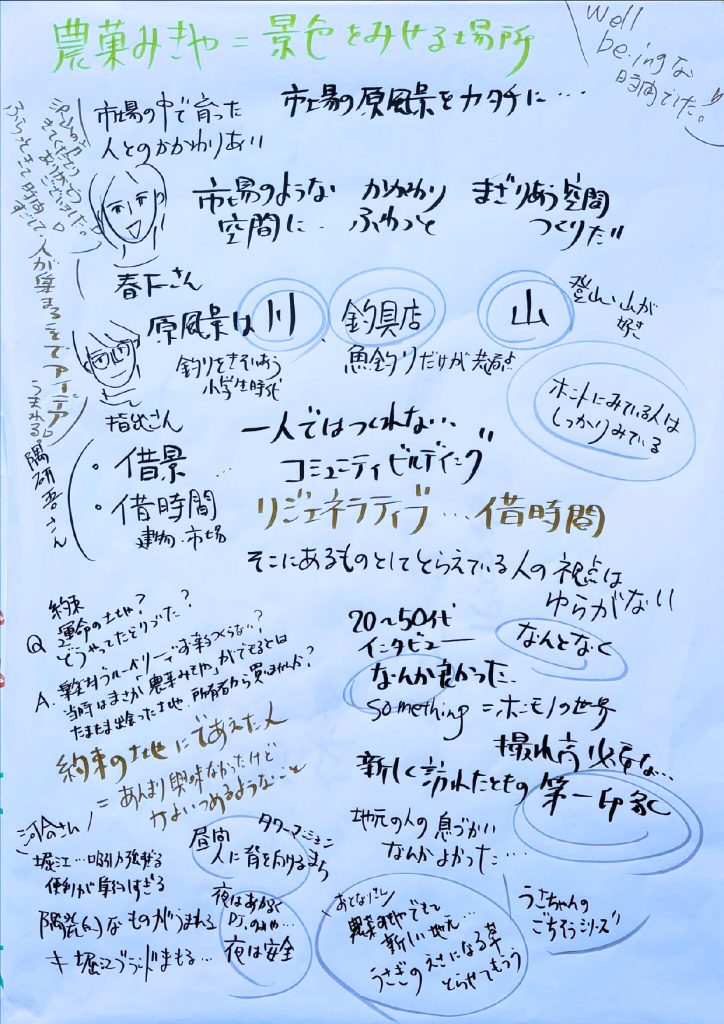 農菓みきや＝景色をみせる場所
Well
be.ingな
時間でした。
市場の中で育った
人とのかかわりあい
市場の原風景をカタチに…
市場のような かかわり まざりあう空間
空間に ふわっと つくりだ
春下さん
人が集まることでアイデア
うまれる。
隈研吾さん
原風景は川、釣具店 山
登山、山が
好き
釣りをきそいあう
小学生時代
魚釣りだけが
さん
ホントにみている人は
しっかりみている
一人ではつくれない…
・借景 … コミュニティビルディング
・借時間
建物・市場
リジェネラティブ…借時間
そこにあるものとしてとらえている人の視点は
ゆらがない
約束
Q 運命の土地？
どうやってたどりついた？
A.
当時はまさか「農菓みきや」ができるとは
たまたま出会った土地、所有者から買いませんか？
約束の地にであえた人
＝あんまり興味なかったけど
20〜50代
インタビュー
なんとなく
なんか良かった
something＝ホンモノの世界
撮れ高必要ない…
新しく訪れたとき
第一印象
地元の人の息づかい
なんかよかった…
河合さん
堀江…吸引力強すぎる
便利が集約すぎる
なものがうまれる
堀江ブランドまもる…
昼間 タワーマンション
人に背を向けるまち
夜はあかるく
DJ、
夜は安全
おとなりさん
農菓みきやできて
新しい地元…
うさぎのえさになる草
とらせてもらう
うさちゃんの
ごちそうシリーズ